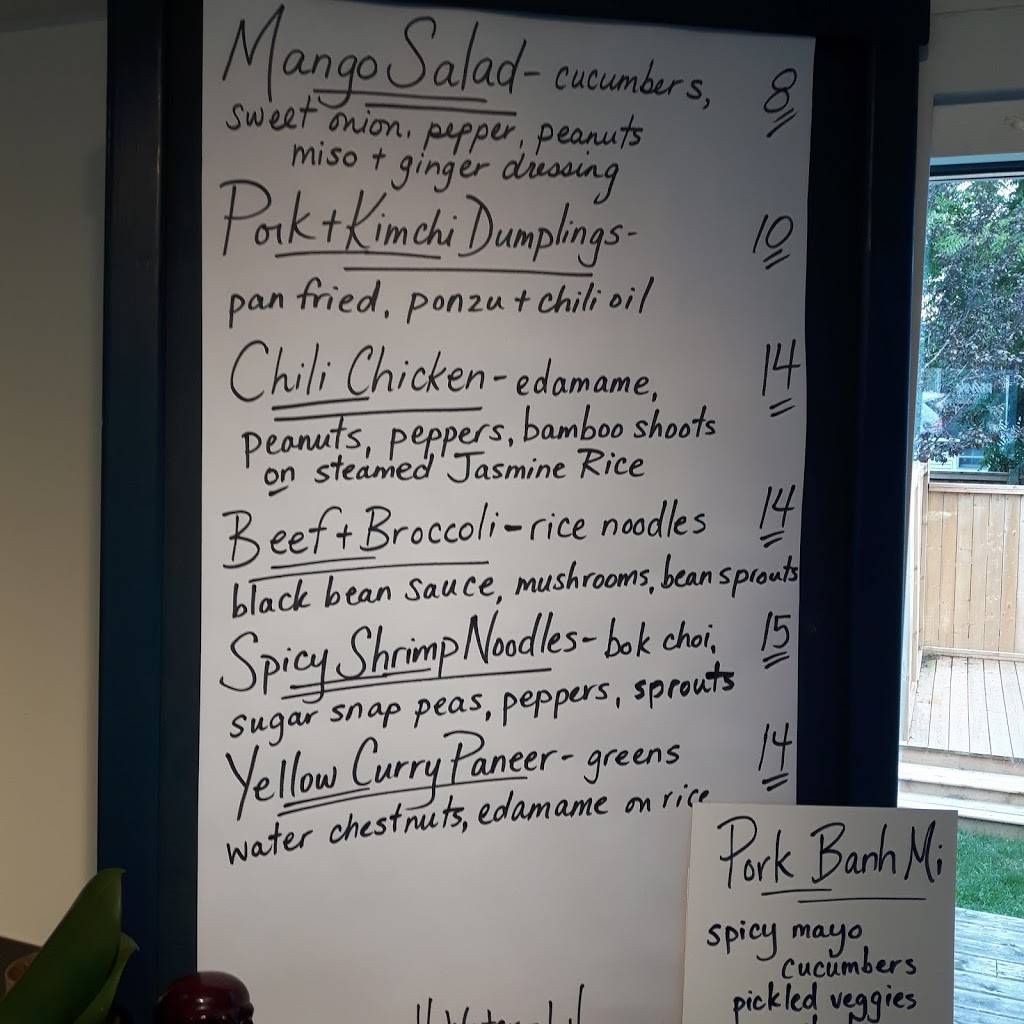 Mango Salad - cucumbers, 8
sweet onion, pepper, peanuts
miso + ginger dressing
Pork + Kimchi Dumplings - 10
pan fried, ponzu + chili oil
Chili Chicken - edamame, 14
peanuts, peppers, bamboo shoots
on steamed Jasmine Rice
Beef + Broccoli - rice noodles 14
black bean sauce, mushrooms, bean sprouts
Spicy Shrimp Noodles - bok choi, 15
sugar snap peas, peppers, sprouts
Yellow Curry Paneer - greens 14
water chestnuts, edamame on rice
Pork Banh Mi
spicy mayo
cucumbers
pickled veggies